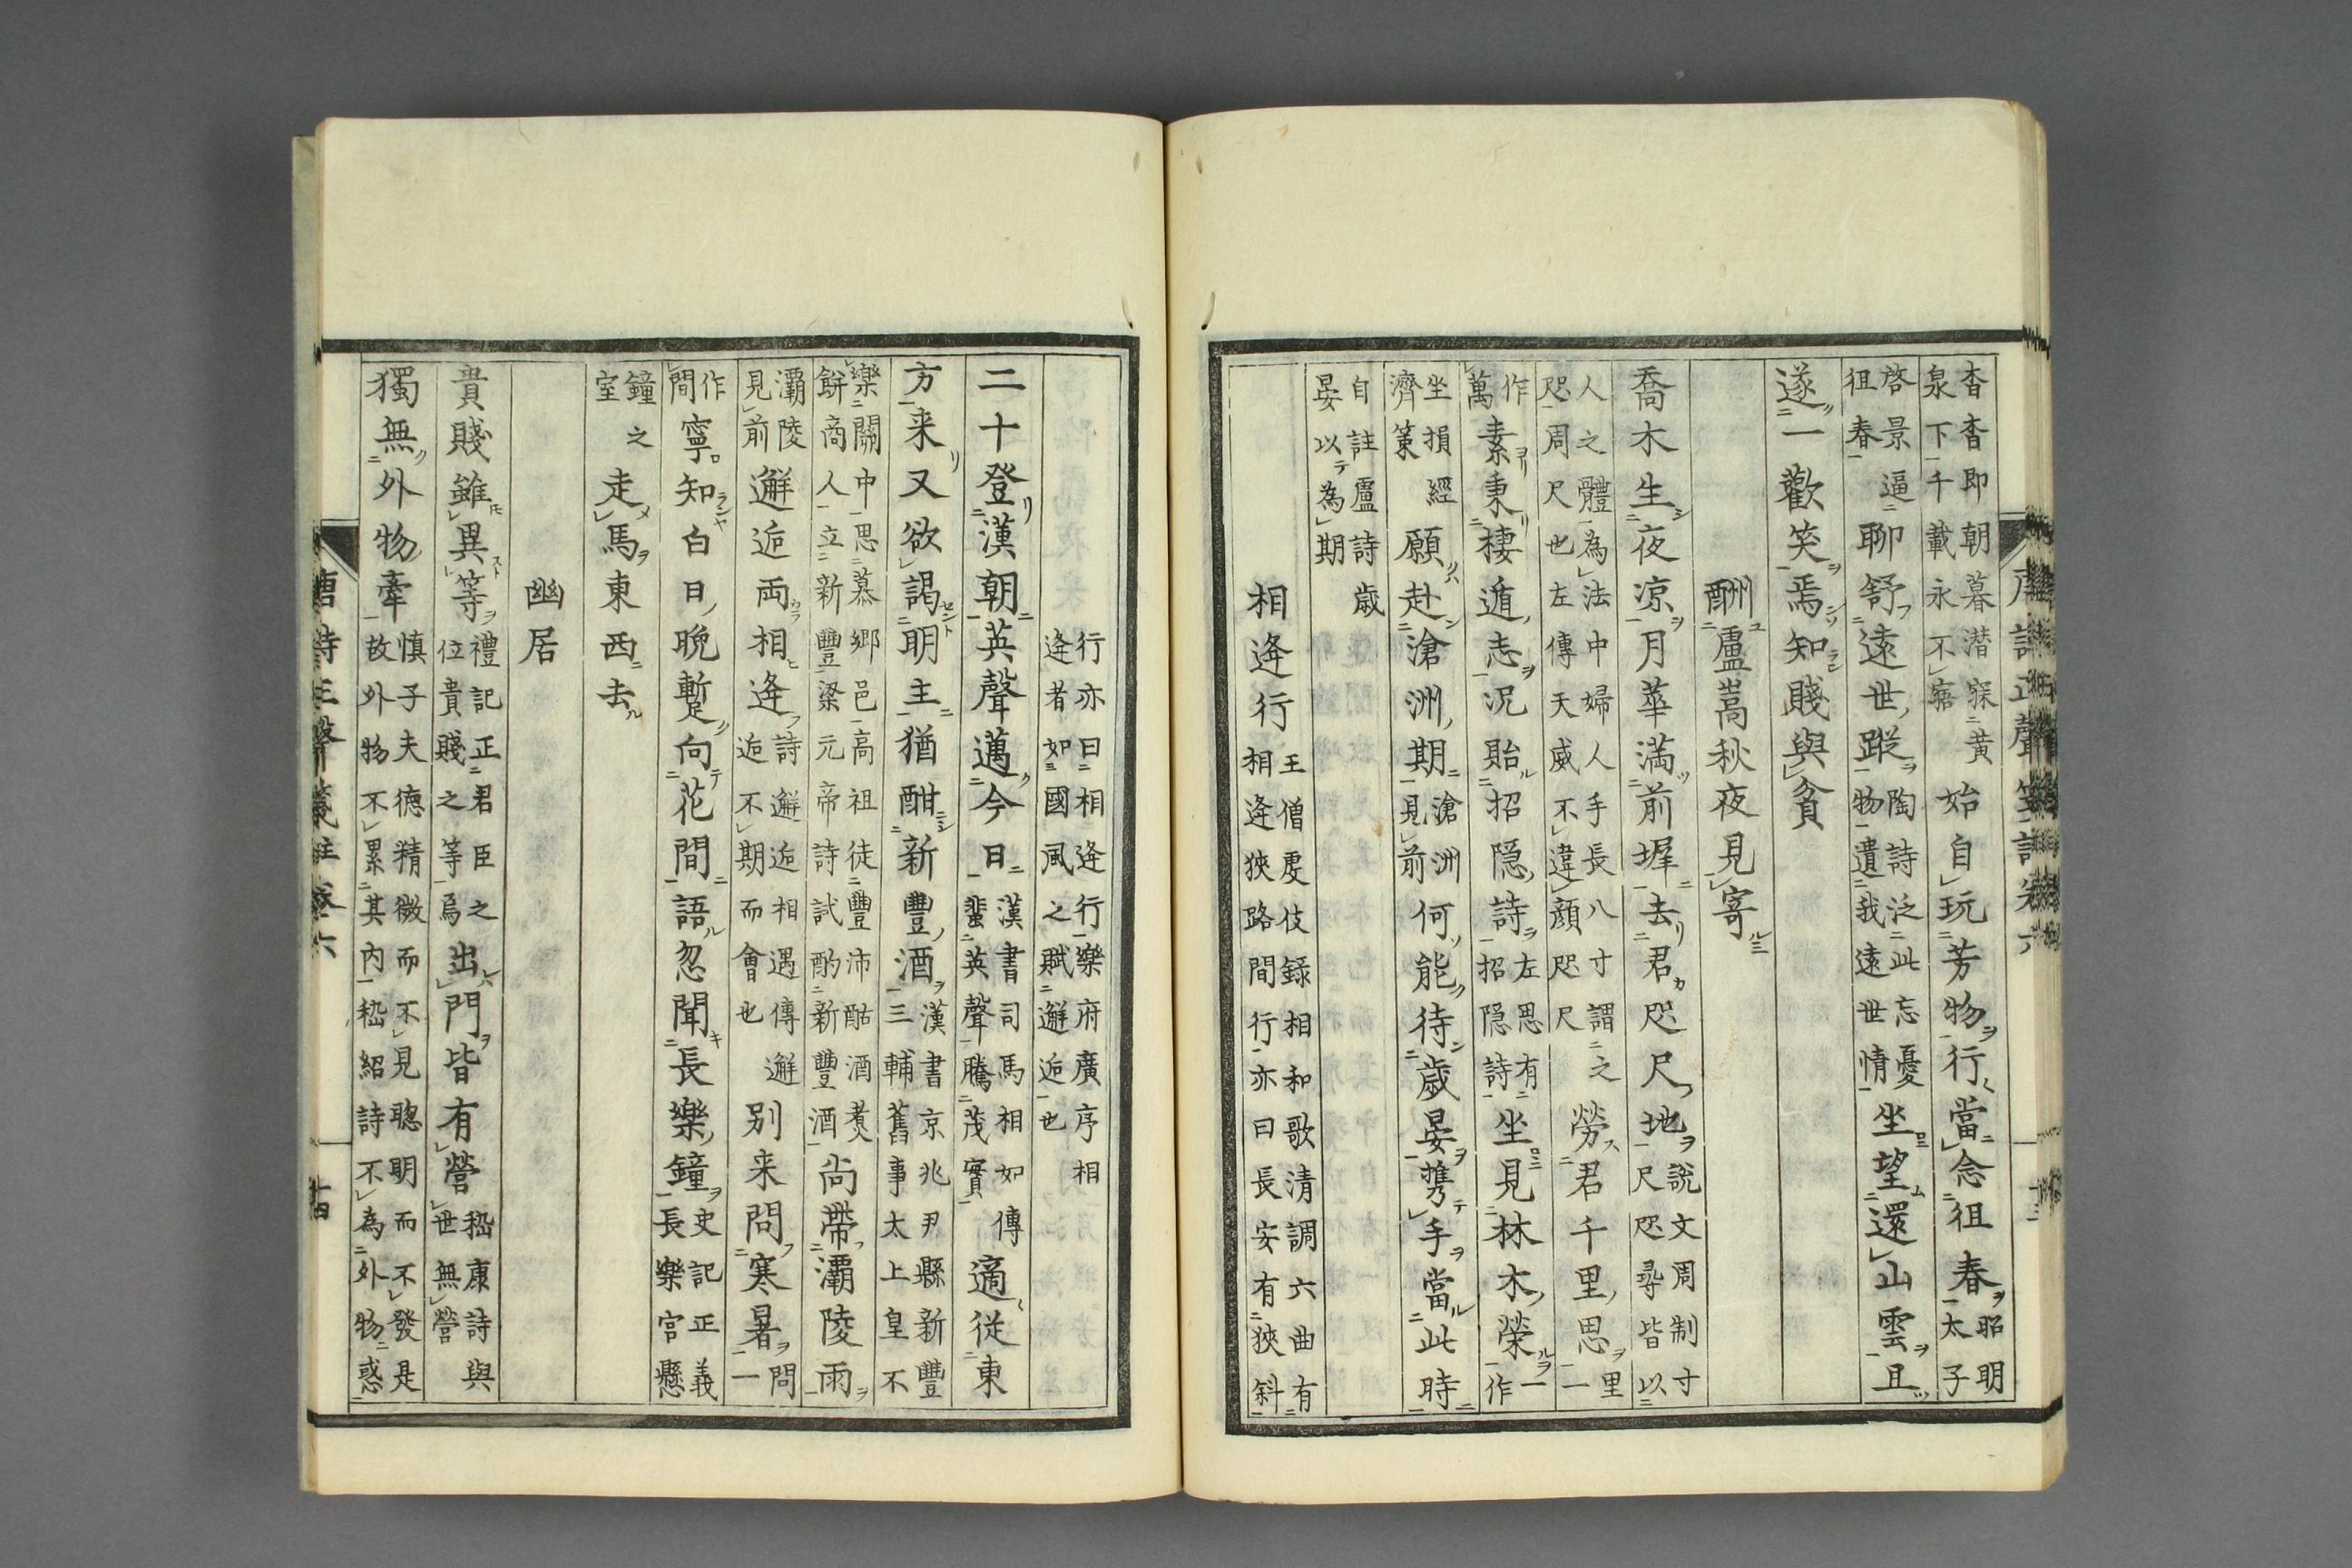 杳杳即朝暮潜寐黄泉下千載永不寤始自玩芳物行當念徂春昭明太子
啓景逼徂春聊舒遠世蹤陶詩泛此忘憂物遺我遠世情坐望還山雲且
遂一歡笑焉知賤與貧
酬盧嵩秋夜見寄
喬木生夜凉月華満前墀去君咫尺地説文周制寸尺咫尋皆以
人之體為法中婦人手長八寸謂之咫周尺也左傳天威不違顔咫尺勞君千里思里一
作萬素秉棲遁志况貽招隠詩左思有招隠詩坐見林木榮一作
坐損經濟策願赴滄洲期滄洲見前何能待歲晏攜手當此時
自註盧詩歲晏以為期
相逄行王僧虔伎録相和歌清調六曲有相逄狹路間行亦曰長安有狹斜
行亦曰相逄行樂府廣序相逄者如國風之賦邂逅也
二十登漢朝英聲邁今日漢書司馬相如傳蜚英聲騰茂實適從東
方来又欲謁明主猶酣新豐酒漢書京兆尹縣新豐三輔舊事太上皇不
樂關中思慕郷邑高祖徒豐沛酤酒煑餅商人立新豐梁元帝詩試酌新豐酒尚帶灞陵雨
灞陵見前邂逅両相逄詩邂逅相遇傳邂逅不期而會也别来問寒暑問一
作間寧知白日晩蹔向花間語忽聞長樂鐘史記正義長樂宮懸
鐘之室走馬東西去
幽居
貴賤雖異等禮記正君臣之位貴賤之等焉出門皆有營嵇康詩與世無營
獨無外物牽慎子夫德精微而不見聰明而不發是故外物不累其内嵇紹詩不為外物惑
唐詩正聲箋註卷六